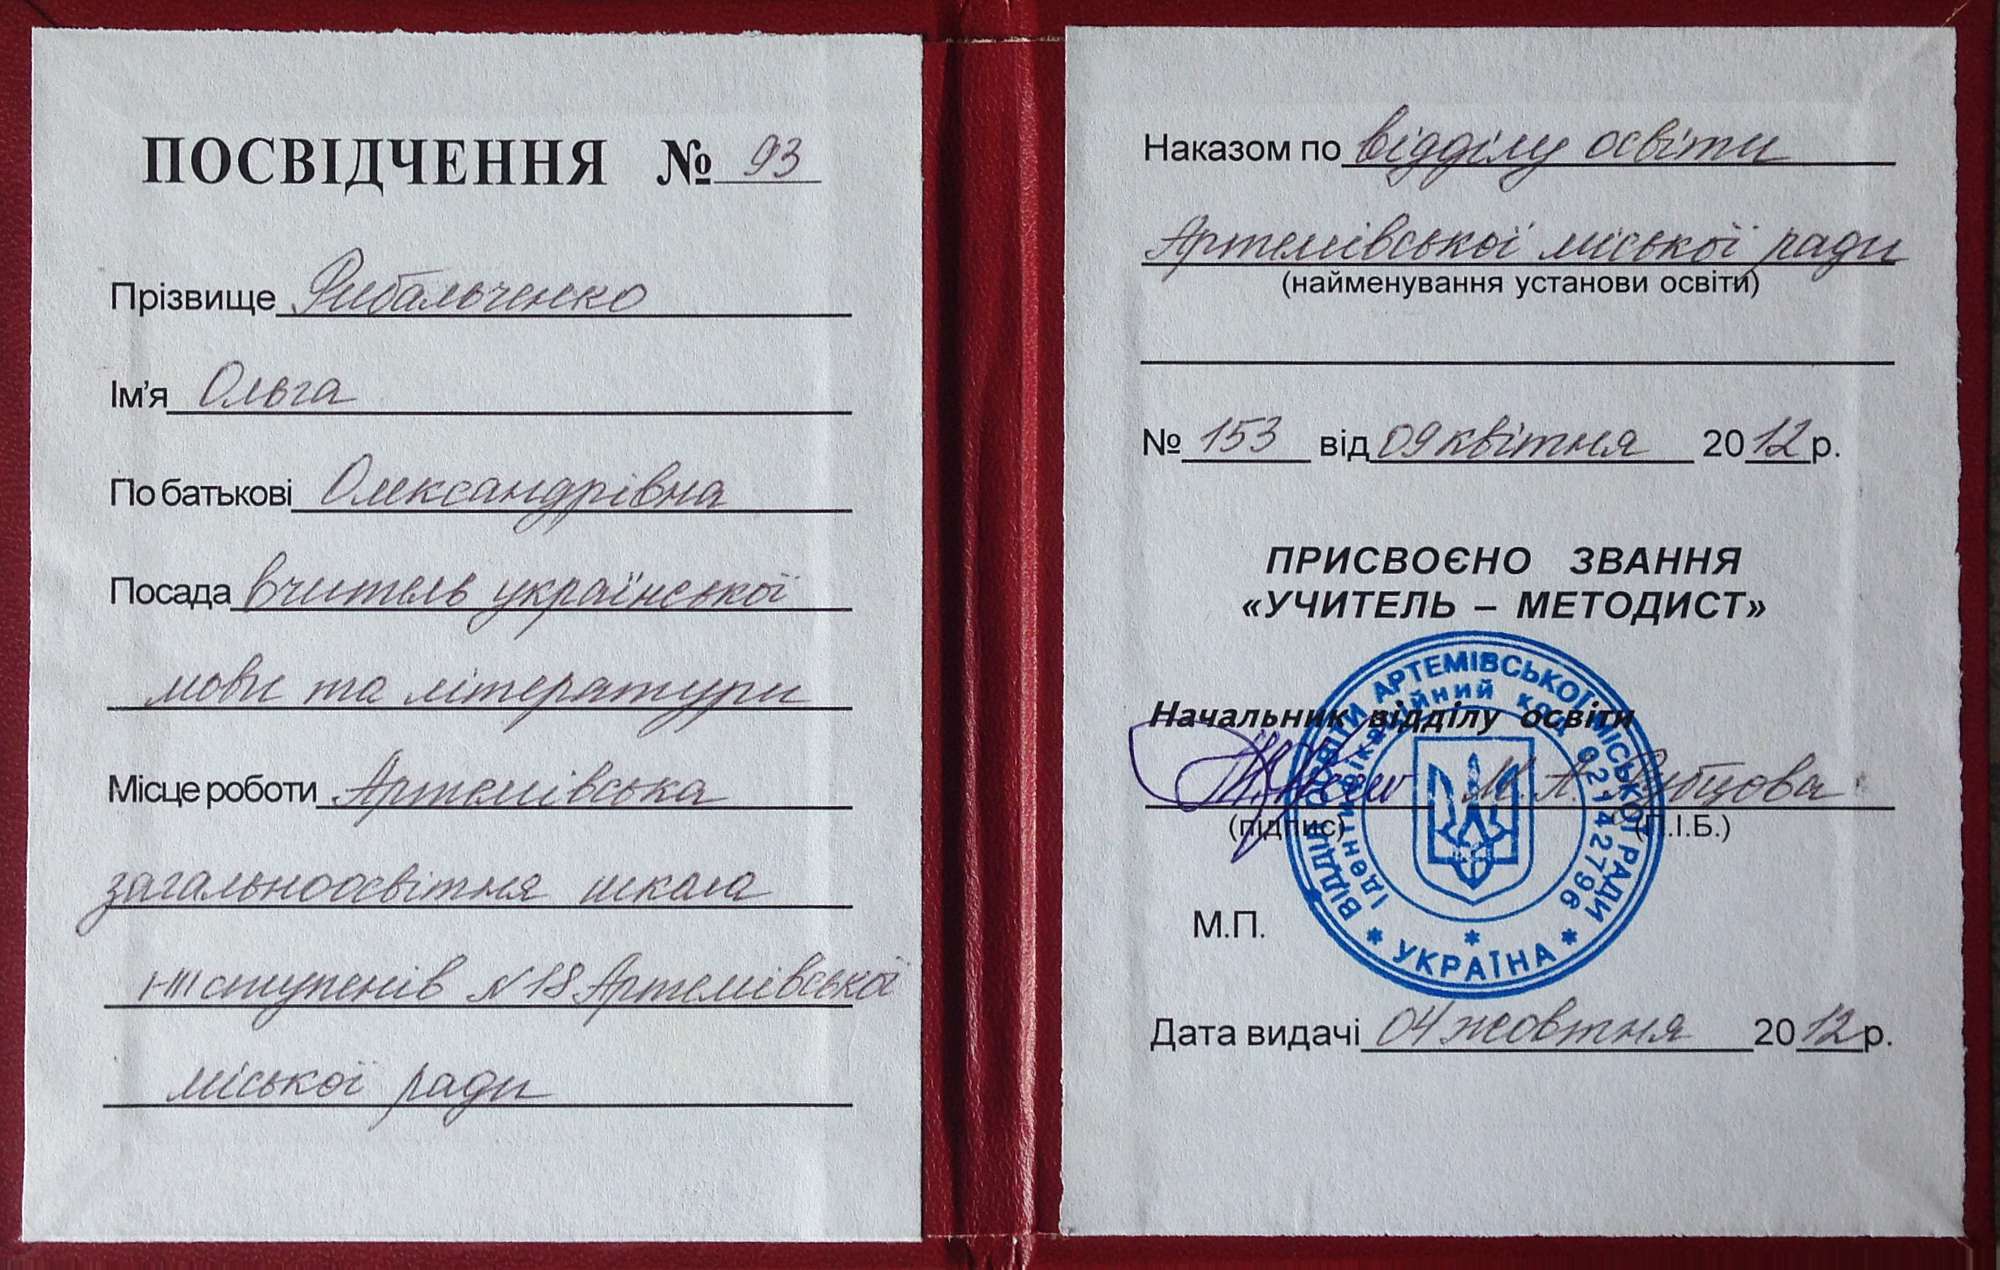 ПОСВІДЧЕННЯ № 93
Прізвище Рибальченко
Ім'я Ольга
По батькові Олександрівна
Посада вчитель української
мови та літератури
Місце роботи Артемівська
загальноосвітня школа
І-ІІІ ступенів №18 Артемівської
міської ради
Наказом по відділу освіти
Артемівської міської ради
(найменування установи освіти)
№ 153 від 09 квітня 2012 р.
ПРИСВОЄНО ЗВАННЯ
«УЧИТЕЛЬ – МЕТОДИСТ»
Начальник відділу освіти
М.А. Рубцова
(підпис) (П.І.Б.)
М.П.
ВІДДІЛ ОСВІТИ АРТЕМІВСЬКОЇ МІСЬКОЇ РАДИ
Ідентифікаційний код 02142796
* УКРАЇНА *
Дата видачі 04 жовтня 2012 р.